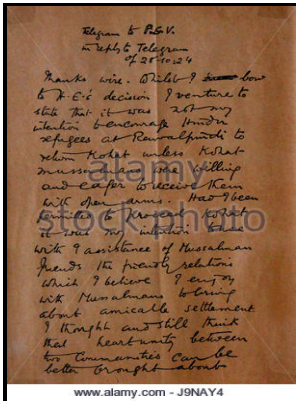 Telegram to P.S.V.
in reply to Telegram
of 28-10-24
Thanks wire. Whilst I bow
to H.E's decision I venture to
state that it was not my
intention to encourage Hindu
refugees at Rawalpindi to
return Kohat unless Kohat
mussalmans were willing
and eager to receive them
with open arms. Had I been
permitted to proceed Kohat
it was my intention
with assistance of Mussalman
friends the friendly relations
which I believe I enjoy
with Mussalmans to bring
about amicable settlement
I thought and still think
that heart unity between
two Communities can be
better brought about
alamy
stock photo
www.alamy.com - J9NAY4